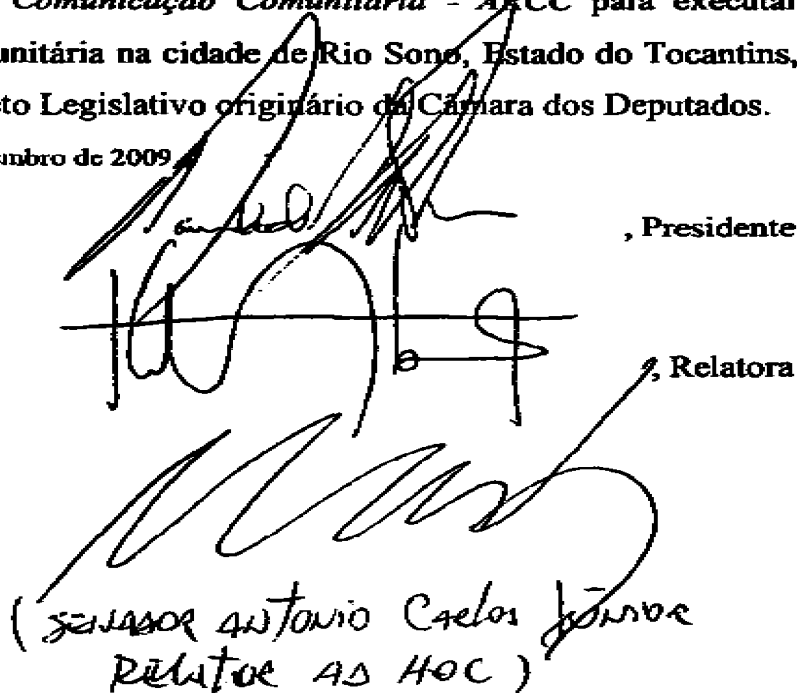 Comunicação Comunitária - ARCC para executar
unitária na cidade de Rio Sono, Estado do Tocantins,
to Legislativo originário da Câmara dos Deputados.
mbro de 2009
, Presidente
, Relatora
( SENADOR ANTONIO CARLOS JÚNIOR
RELATOR AD HOC )